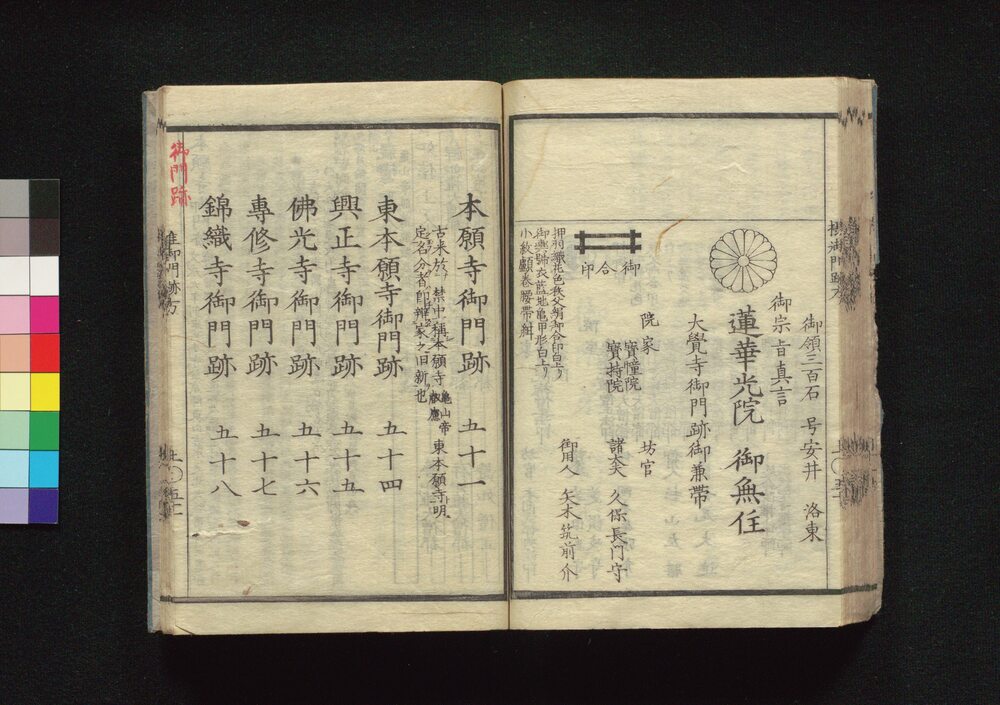 御領三百石　号安井　洛東
御宗旨真言
蓮華光院　御無住
大覺寺御門跡御兼帶
院家　坊官
寳幢院
寳持院
諸大夫　久保長门守
御用人　矢木筑前介
御合印
御輿舁衣藍地亀甲形白上リ
本願寺御門跡　五十一
古来於　禁中稱本願寺　亀山帝　東本願寺明
敕應
定名分者即辨家之旧新也
東本願寺御門跡　五十四
興正寺御門跡　五十五
佛光寺御門跡　五十六
專修寺御門跡　五十七
錦織寺御門跡　五十八
御門跡
准御門跡方
上〇五十一